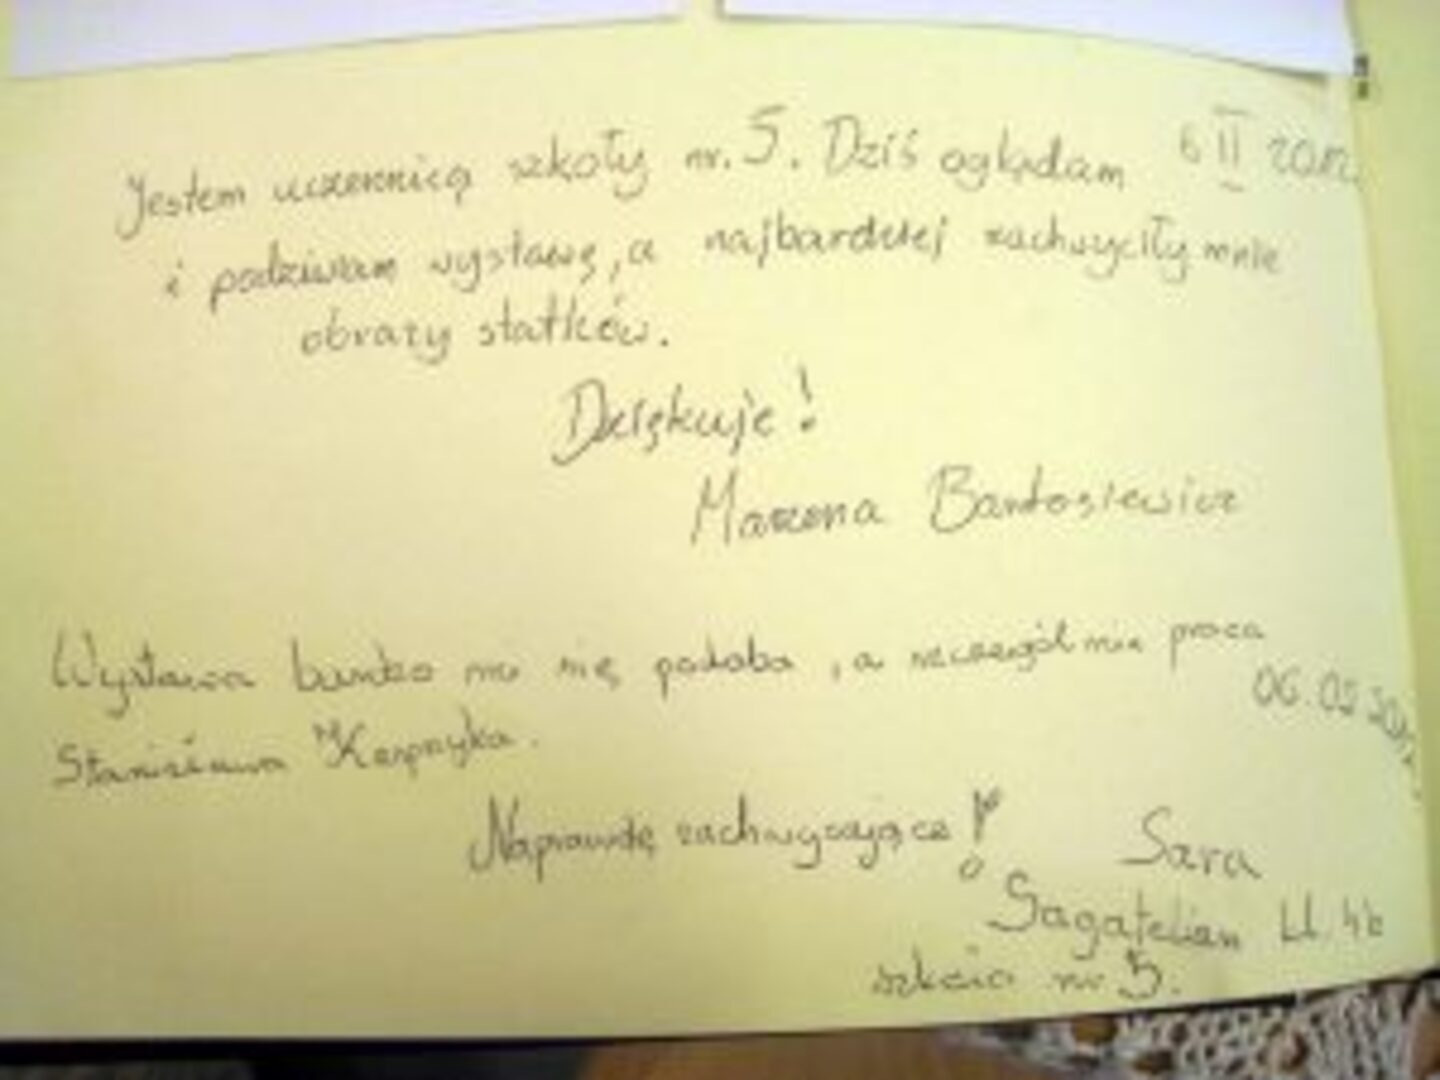 Jestem uczennicą szkoły nr. 5. Dziś oglądam 6 II 2012
i podziwiam wystawę, a najbardziej zachwyciły mnie
obrazy statków.
Dziękuje!
Marzena Bartosiewicz
Wystawa bardzo mi się podoba, a szczególnie praca
06.02.2012
Stanisława Kasprzyka.
Naprawdę zachwycające!
Sara
Sagatelian kl. 4b
szkoła nr 5.